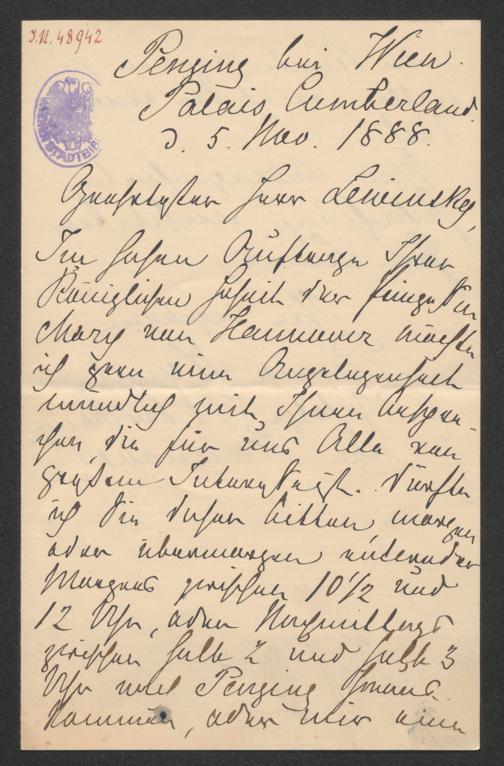 J.N. 48942
Penzing bei Wien.
Palais Cumberland.
d. 5. Nov. 1888.
Geehrtester Herr Lewinsky,
Im hohen Auftrage Ihrer
Königlichen Hoheit der Prinzessin
Mary von Hannover möchte
ich gern eine Angelegenheit
mündlich mit Ihnen bespre-
chen, die für uns Alle von
größtem Interesse ist. Dürfte
ich Sie daher bitten morgen
oder übermorgen entweder
Morgens zwischen 10½ und
12 Uhr, oder Nachmittags
zwischen halb 2 und halb 3
Uhr nach Penzing heraus
kommen, oder mir einen